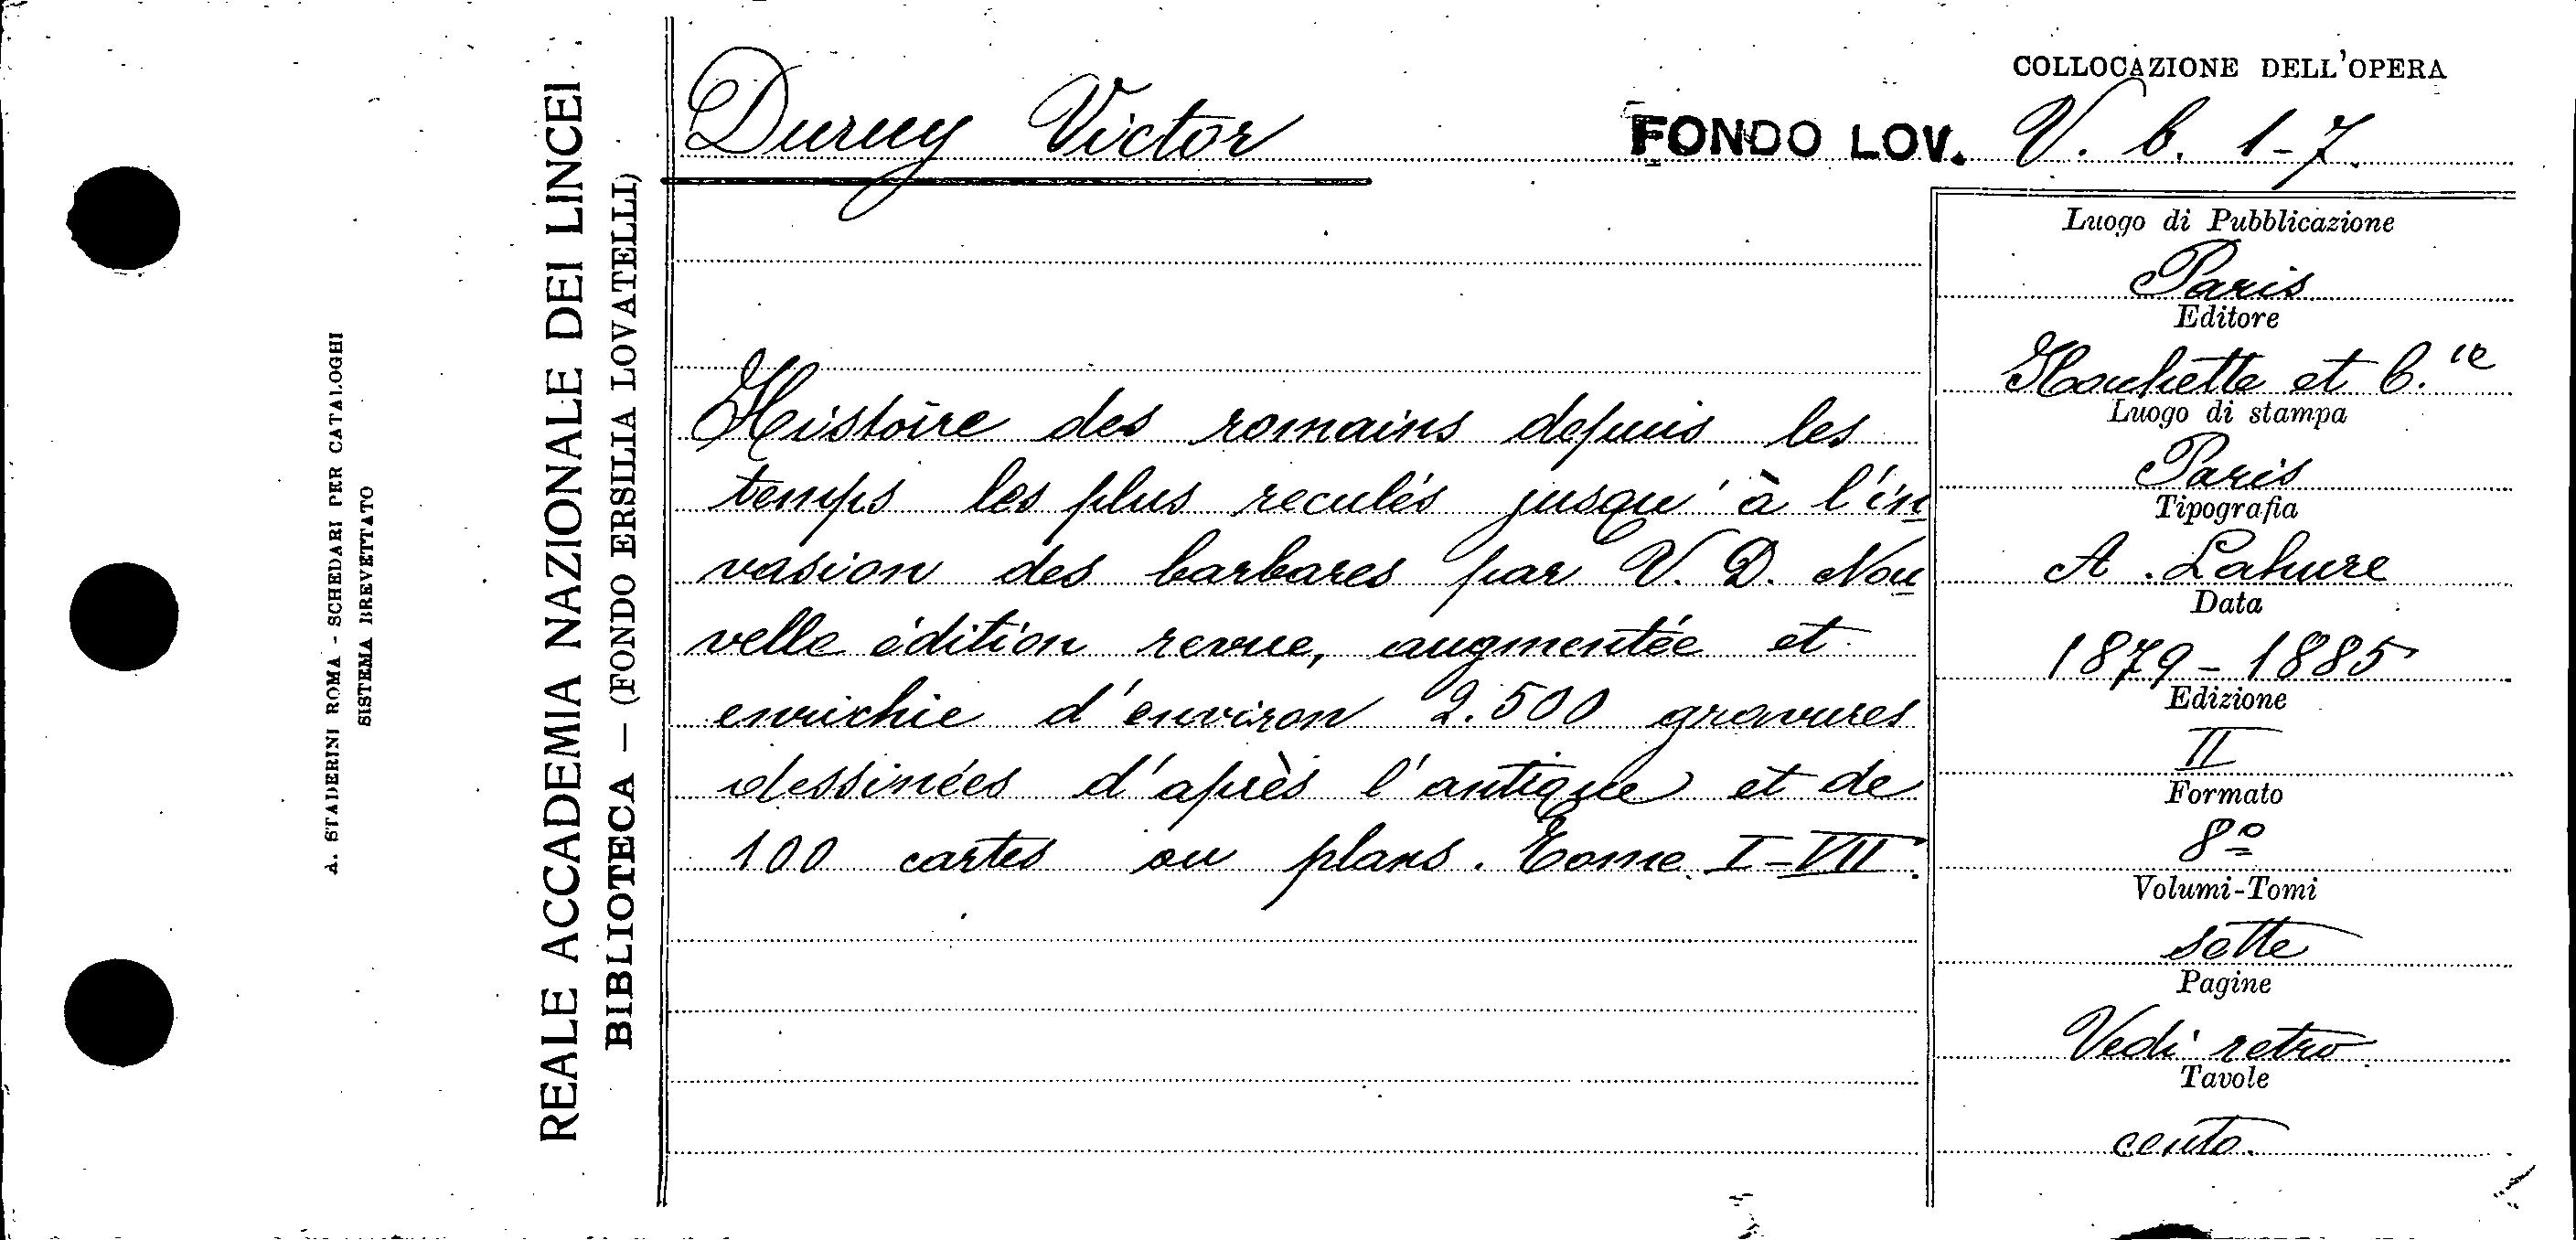 A. STADERINI ROMA - SCHEDARI PER CATALOGHI
SISTEMA BREVETTATO
REALE ACCADEMIA NAZIONALE DEI LINCEI
BIBLIOTECA — (FONDO ERSILIA LOVATELLI)
Duruy Victor
COLLOCAZIONE DELL'OPERA
FONDO LOV. V. b. 1-7.
Histoire des romains depuis les
temps les plus reculés jusqu'à l'in
vasion des barbares par V. D. Nou
velle édition revue, augmentée et
enrichie d'environ 2.500 gravures
dessinées d'après l'antique et de
100 cartes ou plans. Tome I-VII.
Luogo di Pubblicazione
Paris
Editore
Hachette et C.ie
Luogo di stampa
Paris
Tipografia
A. Lahure
Data
1879-1885
Edizione
II
Formato
8º
Volumi-Tomi
sette
Pagine
Vedi retro
Tavole
cento.